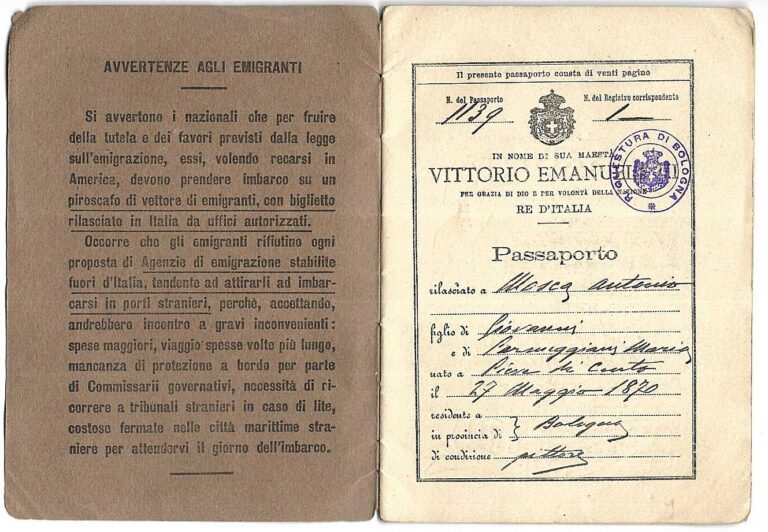 AVVERTENZE AGLI EMIGRANTI
Si avvertono i nazionali che per fruire
della tutela e dei favori previsti dalla legge
sull'emigrazione, essi, volendo recarsi in
America, devono prendere imbarco su un
piroscafo di vettore di emigranti, con biglietto
rilasciato in Italia da uffici autorizzati.
Occorre che gli emigranti rifiutino ogni
proposta di Agenzie di emigrazione stabilite
fuori d'Italia, tendente ad attirarli ad imbar-
carsi in porti stranieri, perchè, accettando,
andrebbero incontro a gravi inconvenienti:
spese maggiori, viaggio spesse volte più lungo,
mancanza di protezione a bordo per parte
di Commissarii governativi, necessità di ri-
correre a tribunali stranieri in caso di lite,
costose fermate nelle città marittime stra-
niere per attendervi il giorno dell'imbarco.
Il presente passaporto consta di venti pagine
N. del Passaporto
N. del Registro corrispondente
1139
1
IN NOME DI SUA MAESTÀ
VITTORIO EMANUELE III
PER GRAZIA DI DIO E PER VOLONTÀ DELLA NAZIONE
RE D'ITALIA
R. QUESTURA DI BOLOGNA
Passaporto
rilasciato a Mosca Antonio
figlio di Giovanni
e di Parmeggiani Maria
nato a Pieve di Cento
il 27 Maggio 1870
residente a
in provincia di } Bologna
di condizione pittore